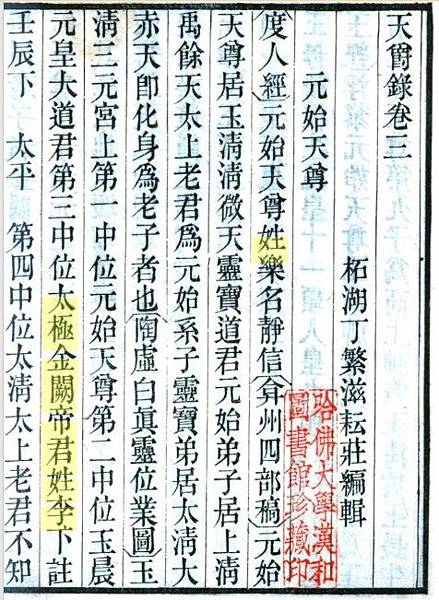 天爵錄卷三
柘湖丁繁滋耘莊編輯
元始天尊
度人經元始天尊姓樂名靜信弇州四部稿元始
天尊居玉淸淸微天靈寶道君元始弟子居上淸
禹餘天太上老君爲元始系子靈寶弟居太淸大
赤天卽化身爲老子者也陶虛白眞靈位業圖玉
淸三元宮上第一中位元始天尊第二中位玉晨
元皇大道君第三中位太極金闕帝君姓李下註
壬辰下 太平 第四中位太淸太上老君不知
哈佛大學漢和
圖書館珍藏印